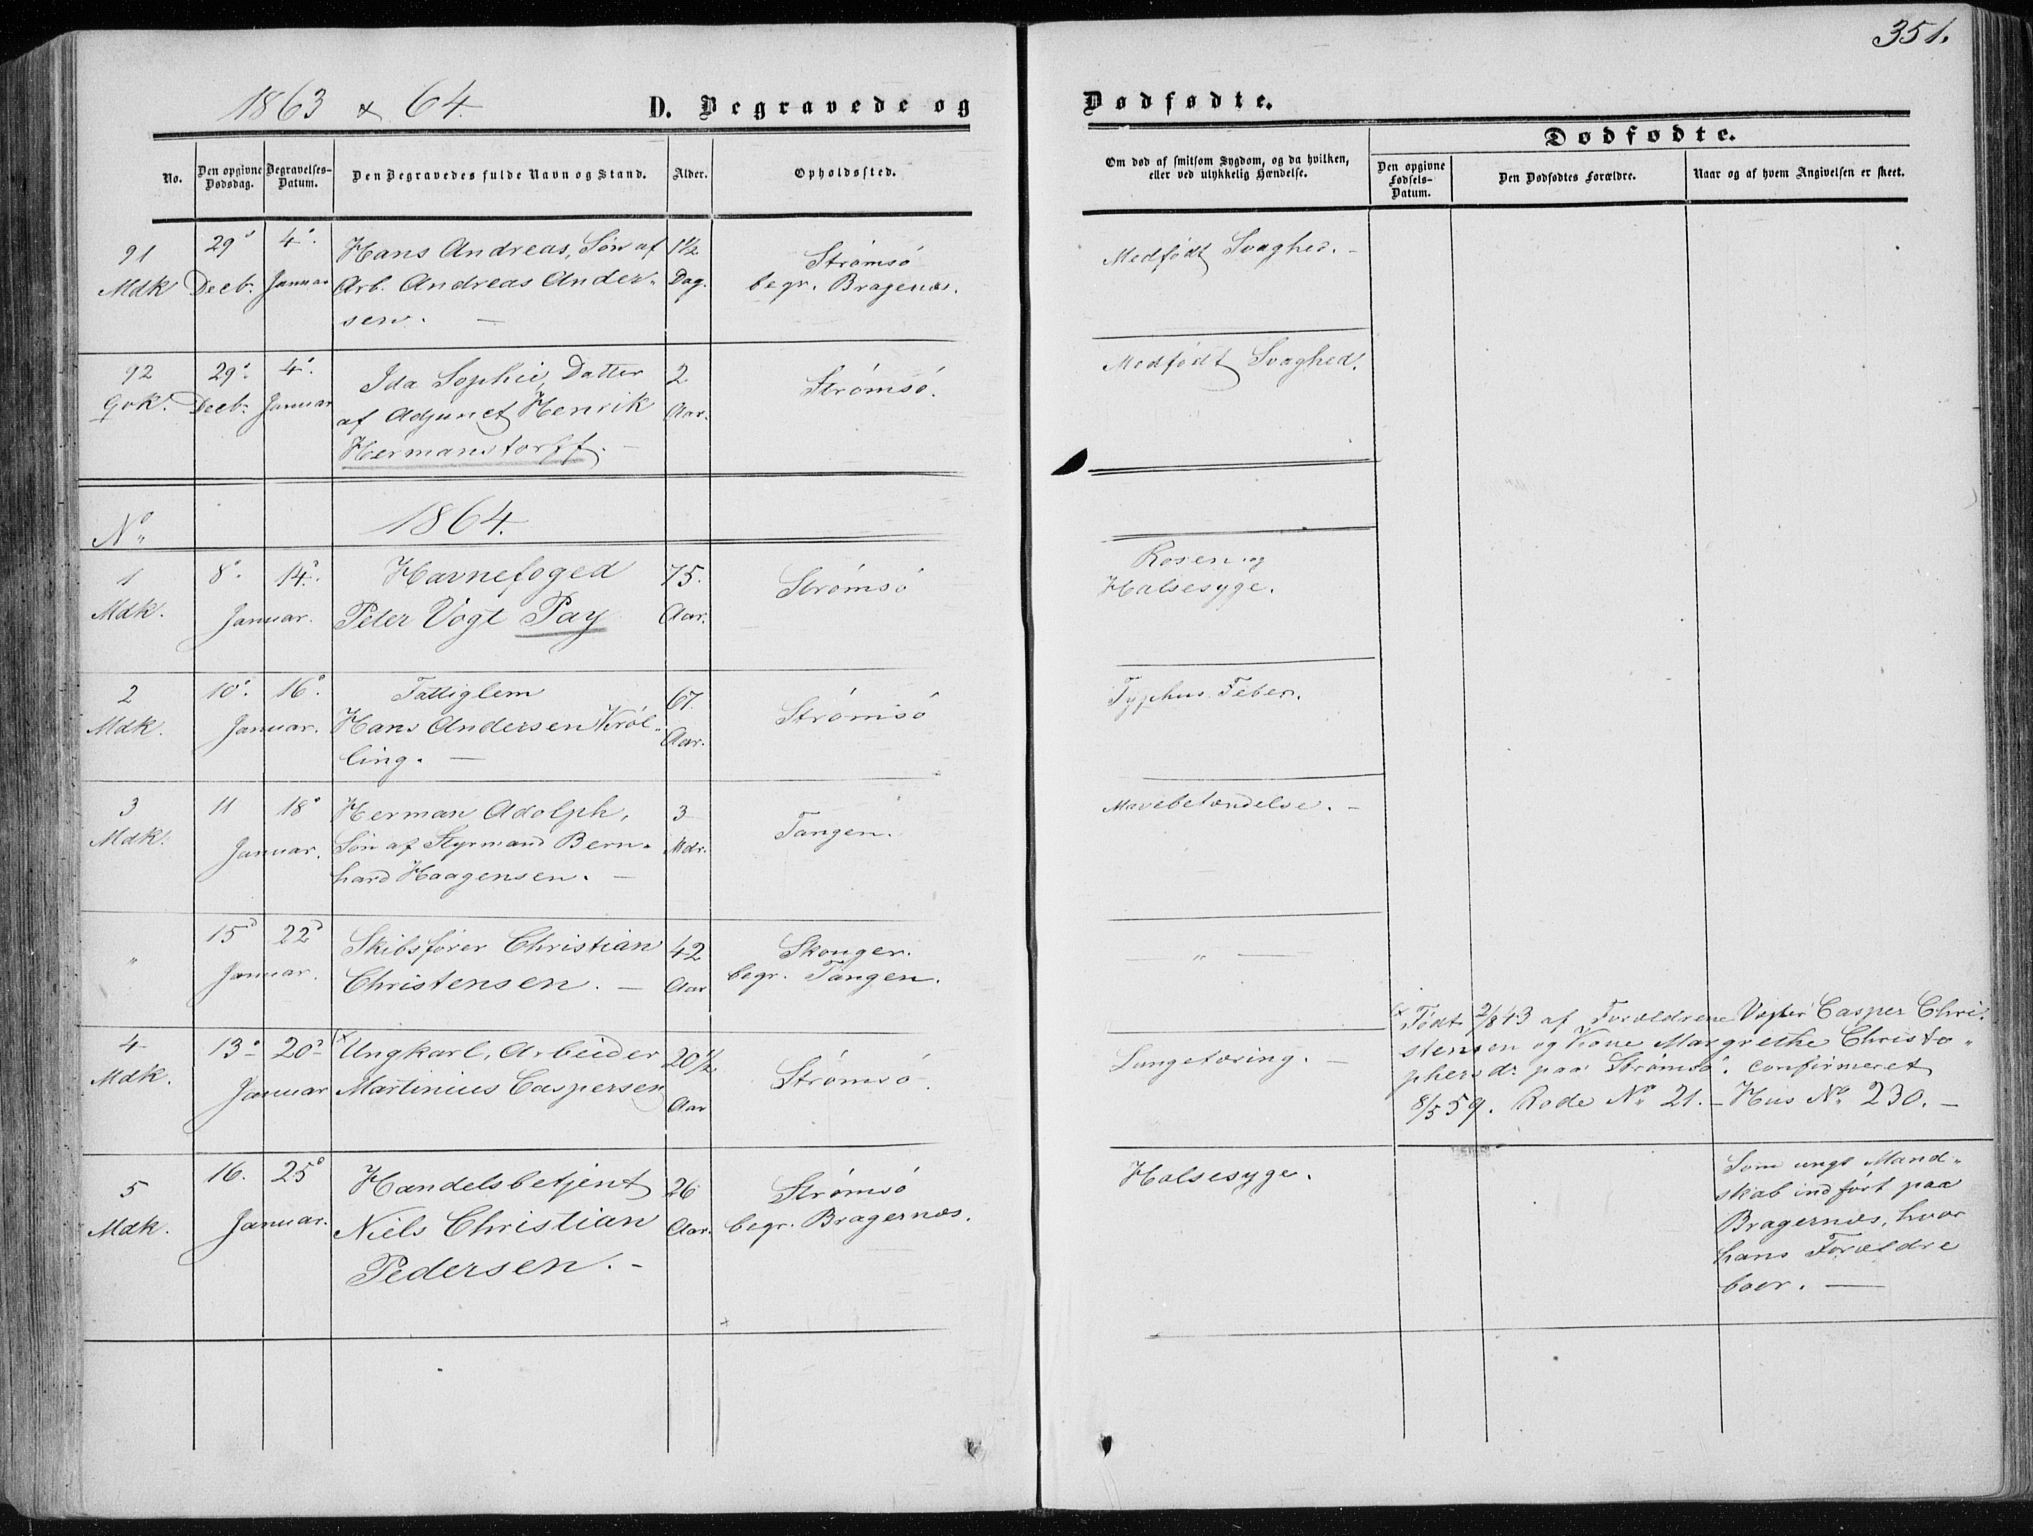 351.
1863 & 64.
D. Begravede og
Dødfødte.
Dødfødte.
No.
Den opgivne Dødsdag.
Begravelses-Datum.
Den Begravedes fulde Navn og Stand.
Alder.
Opholdssted.
Om død af smitsom Sygdom, og da hvilken,
eller ved ulykkelig Hændelse.
Den opgivne Fødsels-Datum.
Den Dødfødtes Forældre.
Naar og af hvem Angivelsen er skeet.
91 29' 4' Hans Andreas, Søn af 1½ Strømsö Medfødt Svaghed. -
Mdk Decb. Januar Arb. Andreas Ander- Dag. begr. Bragenæs.
sen. -
92 29' 4' Ida Sophie, Datter 2 Strømsö. Medfødt Svaghed.
Qvk. Decb. Januar af Adjunct Henrik Aar.
Hermanstorff. -
No 1864.
1 8' 14' Havnefoged 75. Strømsö Rosen og
Mdk. Januar. Peter Vogt Pay Aar. Halsesyge.
2 10' 16' Fattiglem 67. Strømsö Typhus Feber.
Mdk. Januar. Hans Andersen Kröl- Aar.
ling. -
3 11 18' Herman Adolph, 3 Tangen. Mavebetændelse. -
Mdk. Januar. Søn af Styrmand Bern- Mdr.
hard Haagensen. -
" 15' 22' Skibsfører Christian 42 Skonger. - " -
Januar. Christensen. - Aar begr. Tangen.
4 13' 20' x Ungkarl, Arbeider 20½ Strømsö. Lungetæring. -
Mdk. Januar Martinius Caspersen Aar
x Født 2/8 43 af Forældrene Vægter Casper Chri-
stensen og Kone Margrethe Christo-
phersdr paa Strømsö. confirmeret
8/5 59. Rode No 21. - Huus No 230. -
5 16. 25' Handelsbetjent 26 Strømsö Halsesyge.
Mdk. Januar. Niels Christian Aar. begr. Bragernæs.
Pedersen. -
Som ungt Mand-
skab indført paa
Bragernæs, hvor
hans Forældre
boer. -